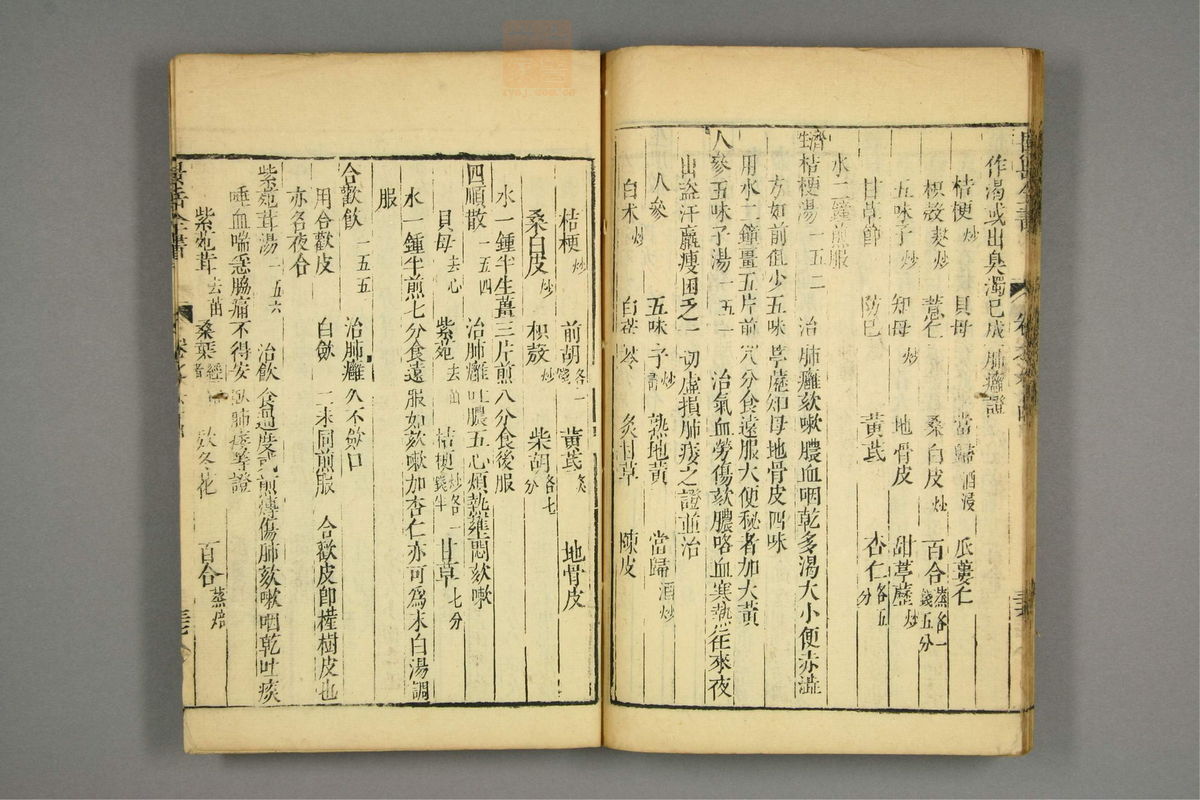 作渴或出臭濁已成肺癰證
桔梗炒 貝母 當歸酒浸 瓜蔞仁
枳殼麩炒 薏仁 桑白皮炒 百合蒸各一錢五分
五味子炒 知母炒 地骨皮 甜葶藶炒
甘草節 防已 黃芪 杏仁各五分
水二鍾煎服
濟生桔梗湯一五二 治肺癰欬嗽膿血咽乾多渴大小便赤澁
方如前但少五味葶藶知母地骨皮四味
用水二鍾薑五片前六分食遠服大便秘者加大黃
人參五味子湯一五 治氣血勞傷欬膿咯血寒熱往來夜
出盜汗羸瘦困乏一切虛損肺痿之證並治
人參 五味子炒 熟地黃 當歸酒炒
白术炒 白茯苓 炙甘草 陳皮
桔梗炒 前胡各一錢 黃芪炙 地骨皮
桑白皮炒 枳殼炒 柴胡各七分
水一鍾半生薑三片煎八分食後服
四順散一五四 治肺癰吐膿五心煩熱壅悶欬嗽
貝母去心 紫菀去苗 桔梗炒各一錢半 甘草七分
水一鍾半煎七分食遠服如欬嗽加杏仁亦可爲末白湯調
服
合歡飲一五五 治肺癰久不斂口
用合歡皮 白斂 二末同煎服 合歡皮卽槿樹皮也
亦名夜合
紫菀茸湯一五六 治飲食過度或煎煿傷肺欬嗽咽乾吐痰
唾血喘急脇痛不得安臥肺痿等證
紫菀茸去苗 桑葉經霜者 欵冬花 百合蒸焙